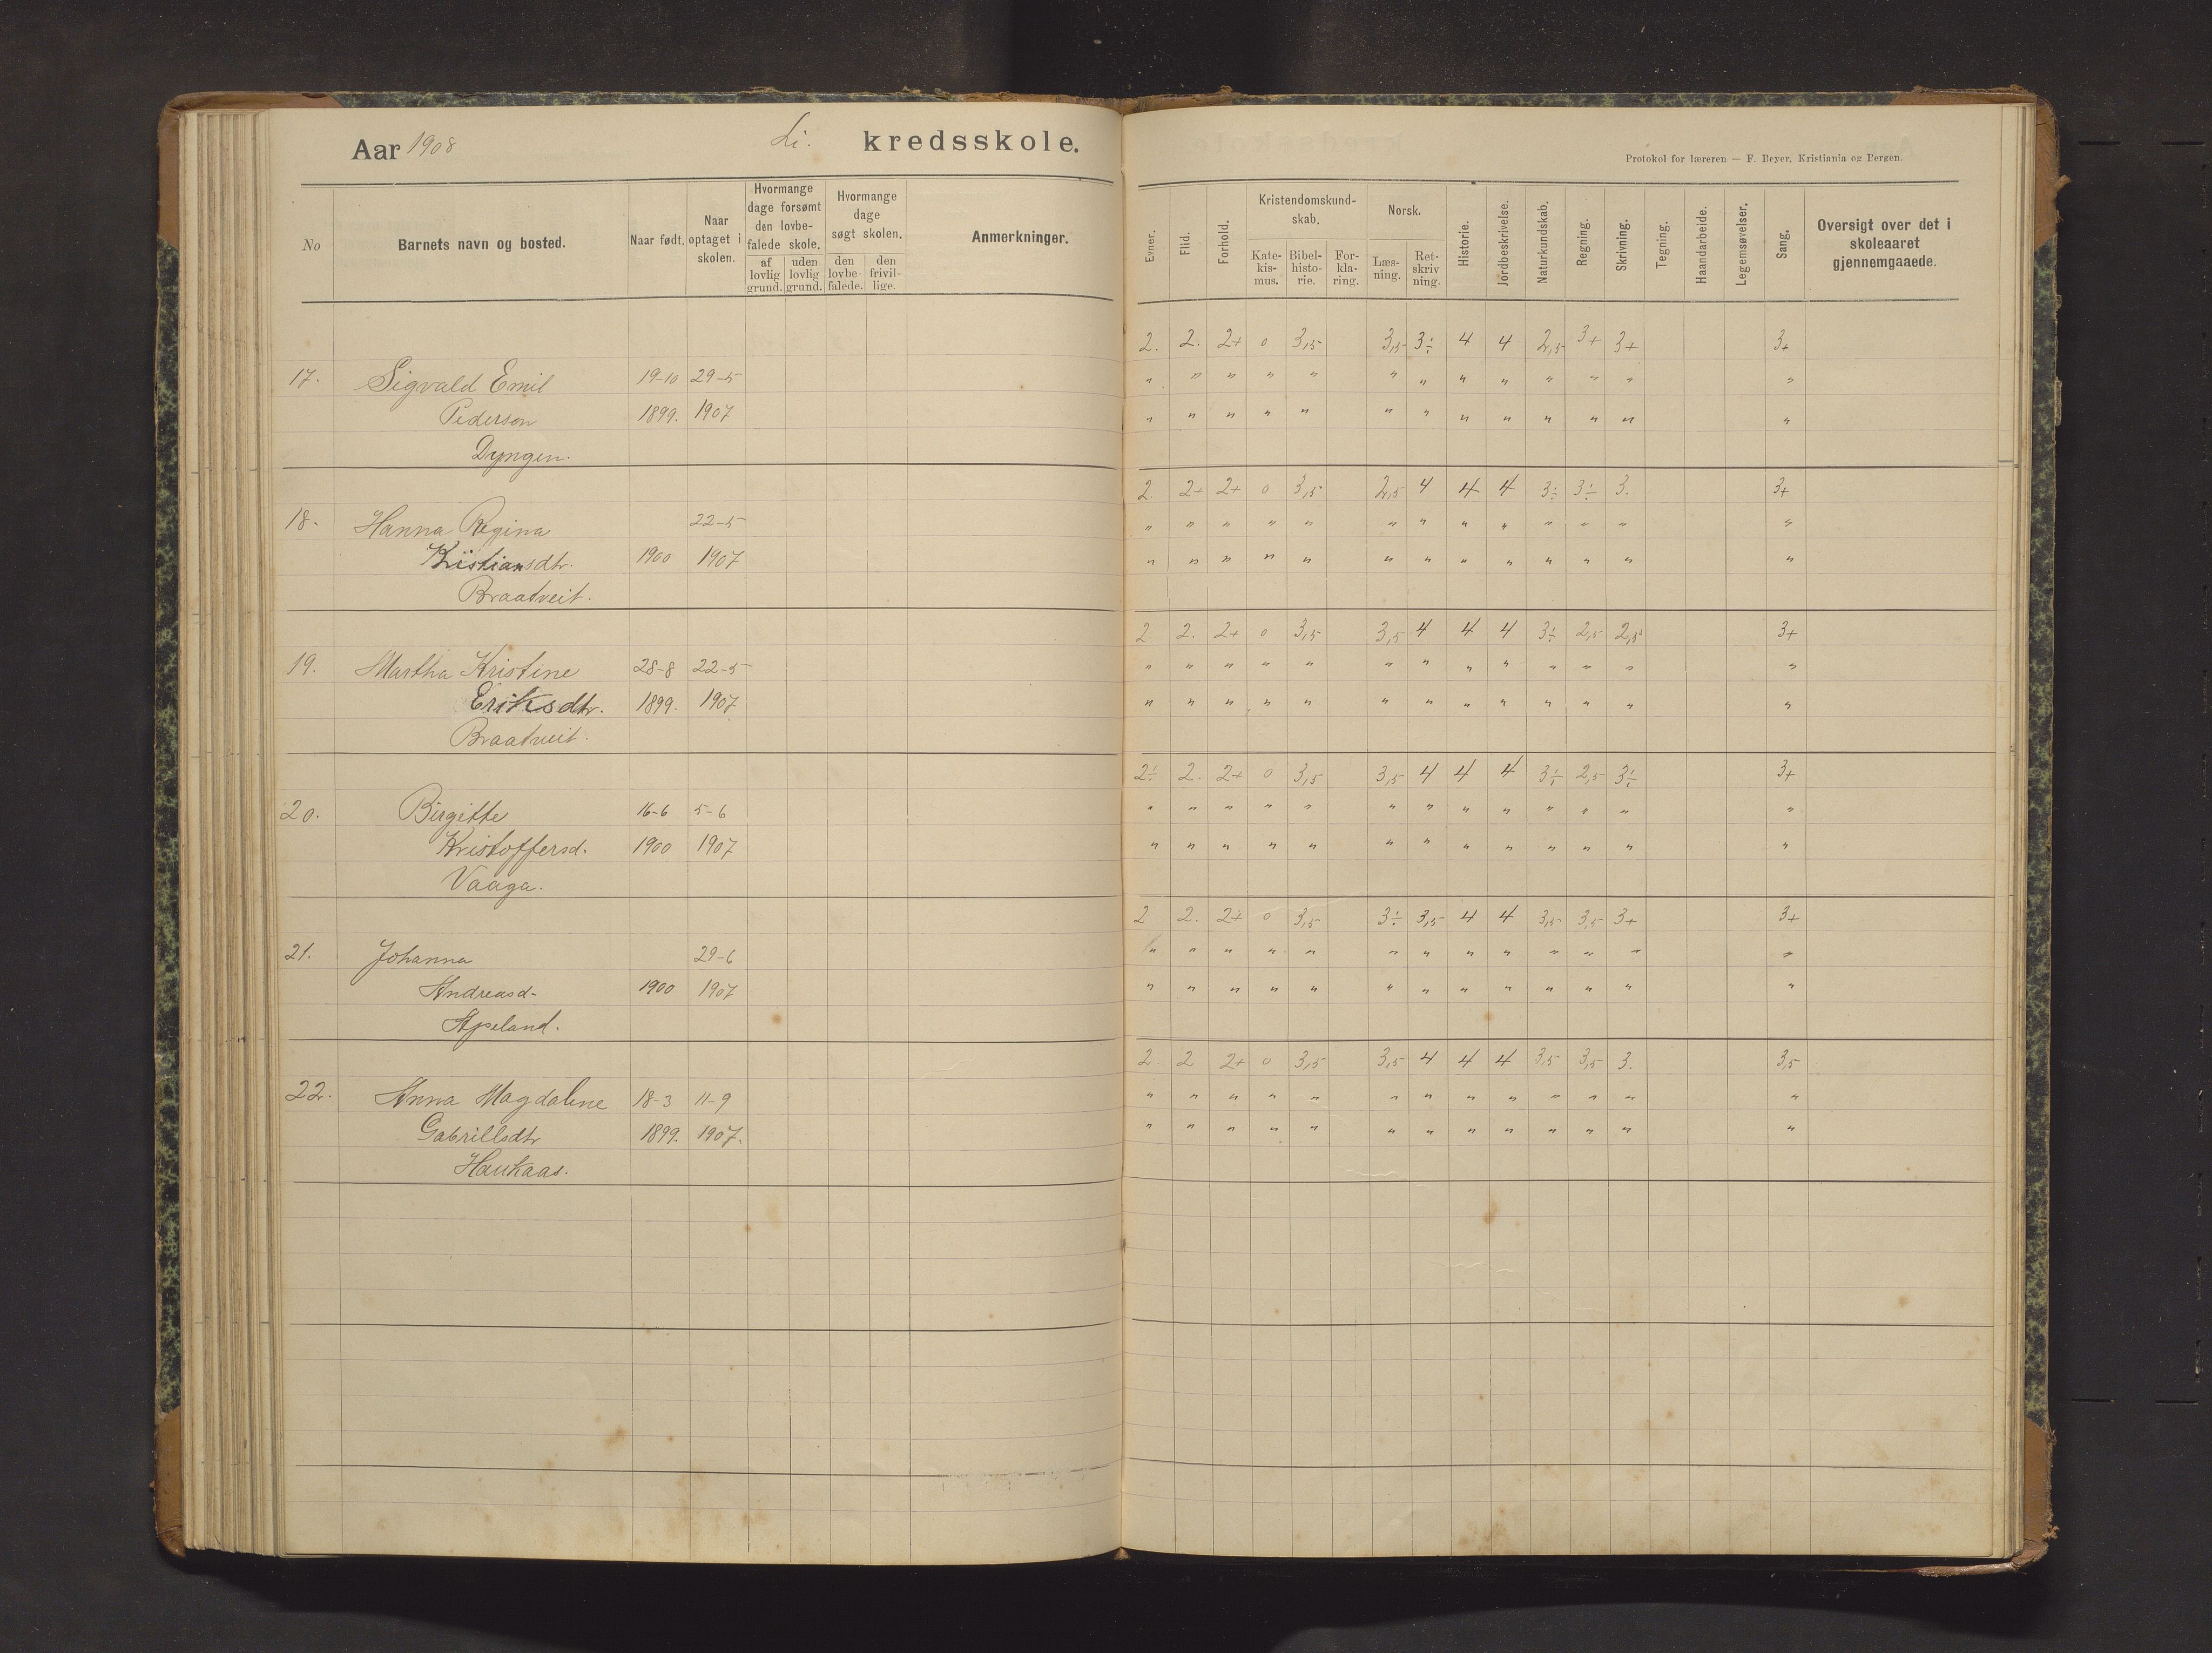 Aar 1908 Li. kredsskole.
Protokol for læreren — F. Beyer, Kristiania og Bergen.
No Barnets navn og bosted. Naar født. Naar optaget i skolen. Hvormange dage forsømt den lovbefalede skole. af lovlig grund. uden lovlig grund. Hvormange dage søgt skolen. den lovbefalede. den frivillige. Anmerkninger.
Evner. Flid. Forhold. Kristendomskundskab. Katekismus. Bibelhistorie. Forklaring. Norsk. Læsning. Retskrivning. Historie. Jordbeskrivelse. Naturkundskab. Regning. Skrivning. Tegning. Haandarbeide. Legemsøvelser. Sang. Oversigt over det i skoleaaret gjennemgaaede.
2. 2. 2+ 0 3,5 3,5 3÷ 4 4 2,5 3+ 3+ 3+
17. Sigvald Emil 19-10 29-5 " " " " " " " " " " " " "
Pederson 1899. 1907 " " " " " " " " " " " " "
Dyngen.
2. 2+ 2+ 0 3,5 2,5 4 4 4 3÷ 3÷ 3. 3+
18. Hanna Regina 22-5 " " " " " " " " " " " " "
Kristiansdtr. 1900 1907 " " " " " " " " " " " " "
Braatveit.
2 2. 2+ 0 3,5 3,5 4 4 4 3÷ 2,5 2,5 3+
19. Martha Kristine 28-8 22-5 " " " " " " " " " " " " "
Eriksdtr. 1899. 1907 " " " " " " " " " " " " "
Braatveit.
2÷ 2. 2+ 0 3,5 3,5 4 4 4 3÷ 2,5 3÷ 3+
20. Birgitte 16-6 5-6 " " " " " " " " " " " " "
Kristoffersd. 1900 1907 " " " " " " " " " " " " "
Vaaga.
2 2. 2+ 0 3,5 3÷ 3,5 4 4 3,5 3,5 3+ 3+
21. Johanna 29-6 " " " " " " " " " " " " "
Andreasd- 1900 1907 " " " " " " " " " " " " "
Apeland.
2. 2 2+ 0 3,5 3,5 4 4 4 3,5 3,5 3. 3,5
22. Anna Magdalene 18-3 11-9 " " " " " " " " " " " " "
Gabrillsdtr 1899. 1907. " " " " " " " " " " " " "
Haukaas.